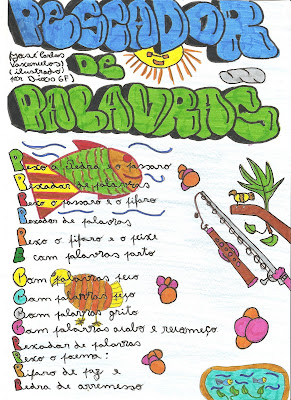 PESCADOR
DE
PALAVRAS
(José Carlos
Vasconcelos)
(ilustrado)
por Diogo 6ºF)
Pesco a pedra e o pássaro
Pescador de palavras
Pesco o pássaro e o pífaro
Pescador de palavras
Pesco o pífaro e o peixe
E com palavras parto
Com palavras peço
Com palavras
Com palavras grito
Com palavras acabo e recomeço
Pescador de palavras
Pesco o poema:
Pífaro de paz e
Pedra de arremesso